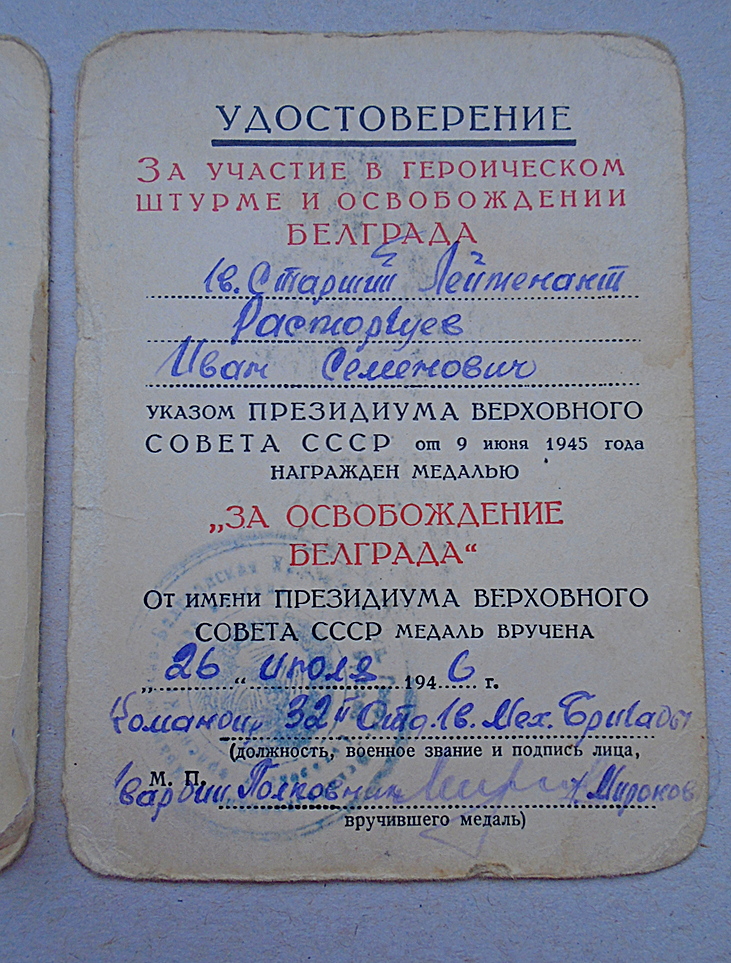 УДОСТОВЕРЕНИЕ
ЗА УЧАСТИЕ В ГЕРОИЧЕСКОМ
ШТУРМЕ И ОСВОБОЖДЕНИИ
БЕЛГРАДА
Гв. Старший Лейтенант
Расторгуев
Иван Семенович
УКАЗОМ ПРЕЗИДИУМА ВЕРХОВНОГО
СОВЕТА СССР от 9 июня 1945 года
НАГРАЖДЕН МЕДАЛЬЮ
„ЗА ОСВОБОЖДЕНИЕ
БЕЛГРАДА“
ОТ ИМЕНИ ПРЕЗИДИУМА ВЕРХОВНОГО
СОВЕТА СССР МЕДАЛЬ ВРУЧЕНА
„26“ июля 1946 г.
Командир 32й Отд. Гв. Мех. Бригады
(должность, военное звание и подпись лица,
М. П.
Гвардии Полковник Миронов
вручившего медаль)